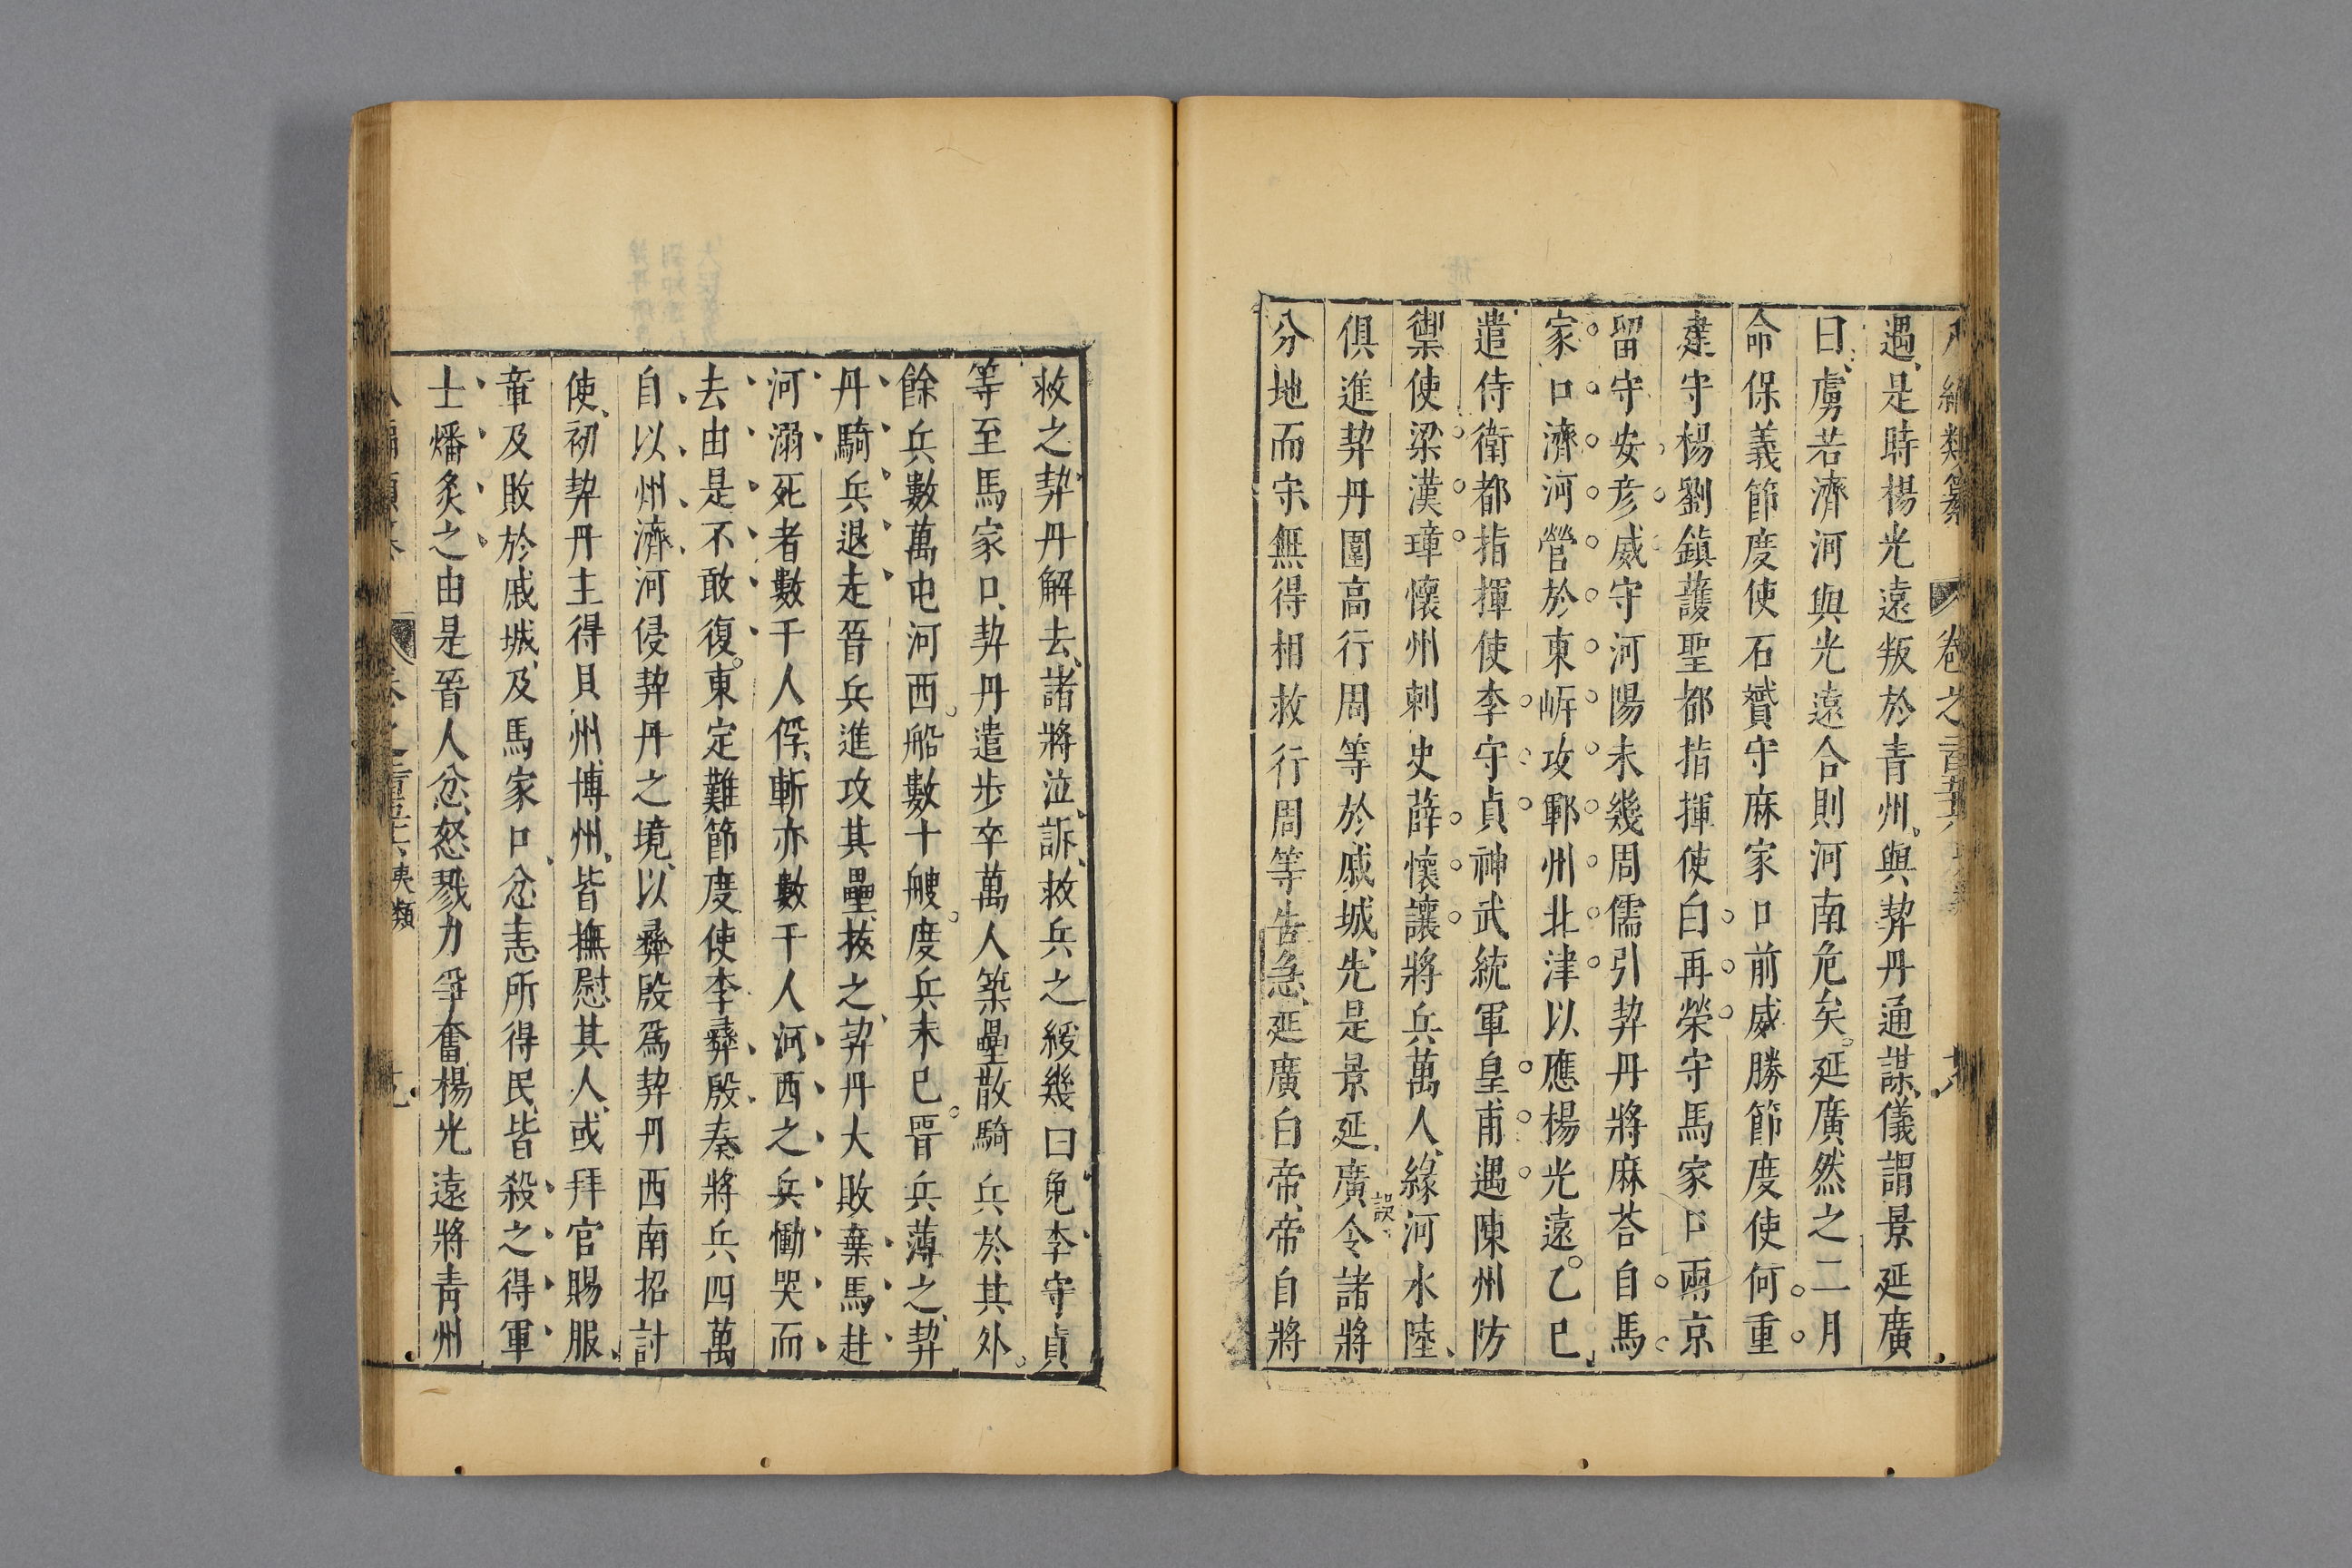 編類纂 卷之
遇是時楊光遠叛於青州與契丹通謀儀謂景延廣
曰虜若濟河與光遠合則河南危矣延廣然之二月
命保義節度使石贇守麻家口前威勝節度使何重
建守楊劉鎮護聖都指揮使白再榮守馬家口兩京
留守安彥威守河陽未幾周儒引契丹將麻荅自馬
家口濟河營於東㟁攻鄆州北津以應楊光遠乙巳
遣侍衛都指揮使李守貞神武統軍皇甫遇陳州防
禦使梁漢璋懷州刺史薛懷讓將兵萬人緣河水陸
俱進契丹圍高行周等於戚城先是景延廣令諸將
誤
分地而守無得相救行周等告急延廣白帝帝自將
救之契丹解去諸將泣訴救兵之緩幾曰免李守貞
等至馬家口契丹遣步卒萬人築壘散騎兵於其外
餘兵數萬屯河西船數十艘度兵未已晉兵薄之契
丹騎兵退走晉兵進攻其壘拔之契丹大敗棄馬赴
河溺死者數千人俘斬亦數千人河西之兵慟哭而
去由是不敢復東定難節度使李彝殷奏將兵四萬
自以州濟河侵契丹之境以彝殷爲契丹西南招討
使初契丹主得貝州博州皆撫慰其人或拜官賜服
章及敗於戚城及馬家口忿恚所得民皆殺之得軍
士燔炙之由是晉人忿怒戮力爭奮楊光遠將青州
夷類